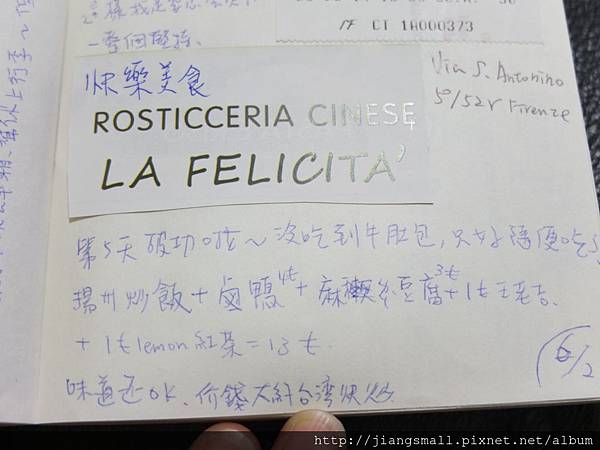 一整個堅持、
IF CT 1A000373
快樂美食
ROSTICCERIA CINESE
LA FELICITA'
Via S. Antonino
50/52r Firenze
第5天破功啦～沒吃到牛肚包,只好隨便吃
揚州炒飯+鹵鴨4€+麻辣豆腐3€+1€王老吉
+1€ lemon紅茶=13€.
味道还OK、价錢大約台灣快炒
6/2
http://jiangsmall.pixnet.net/album